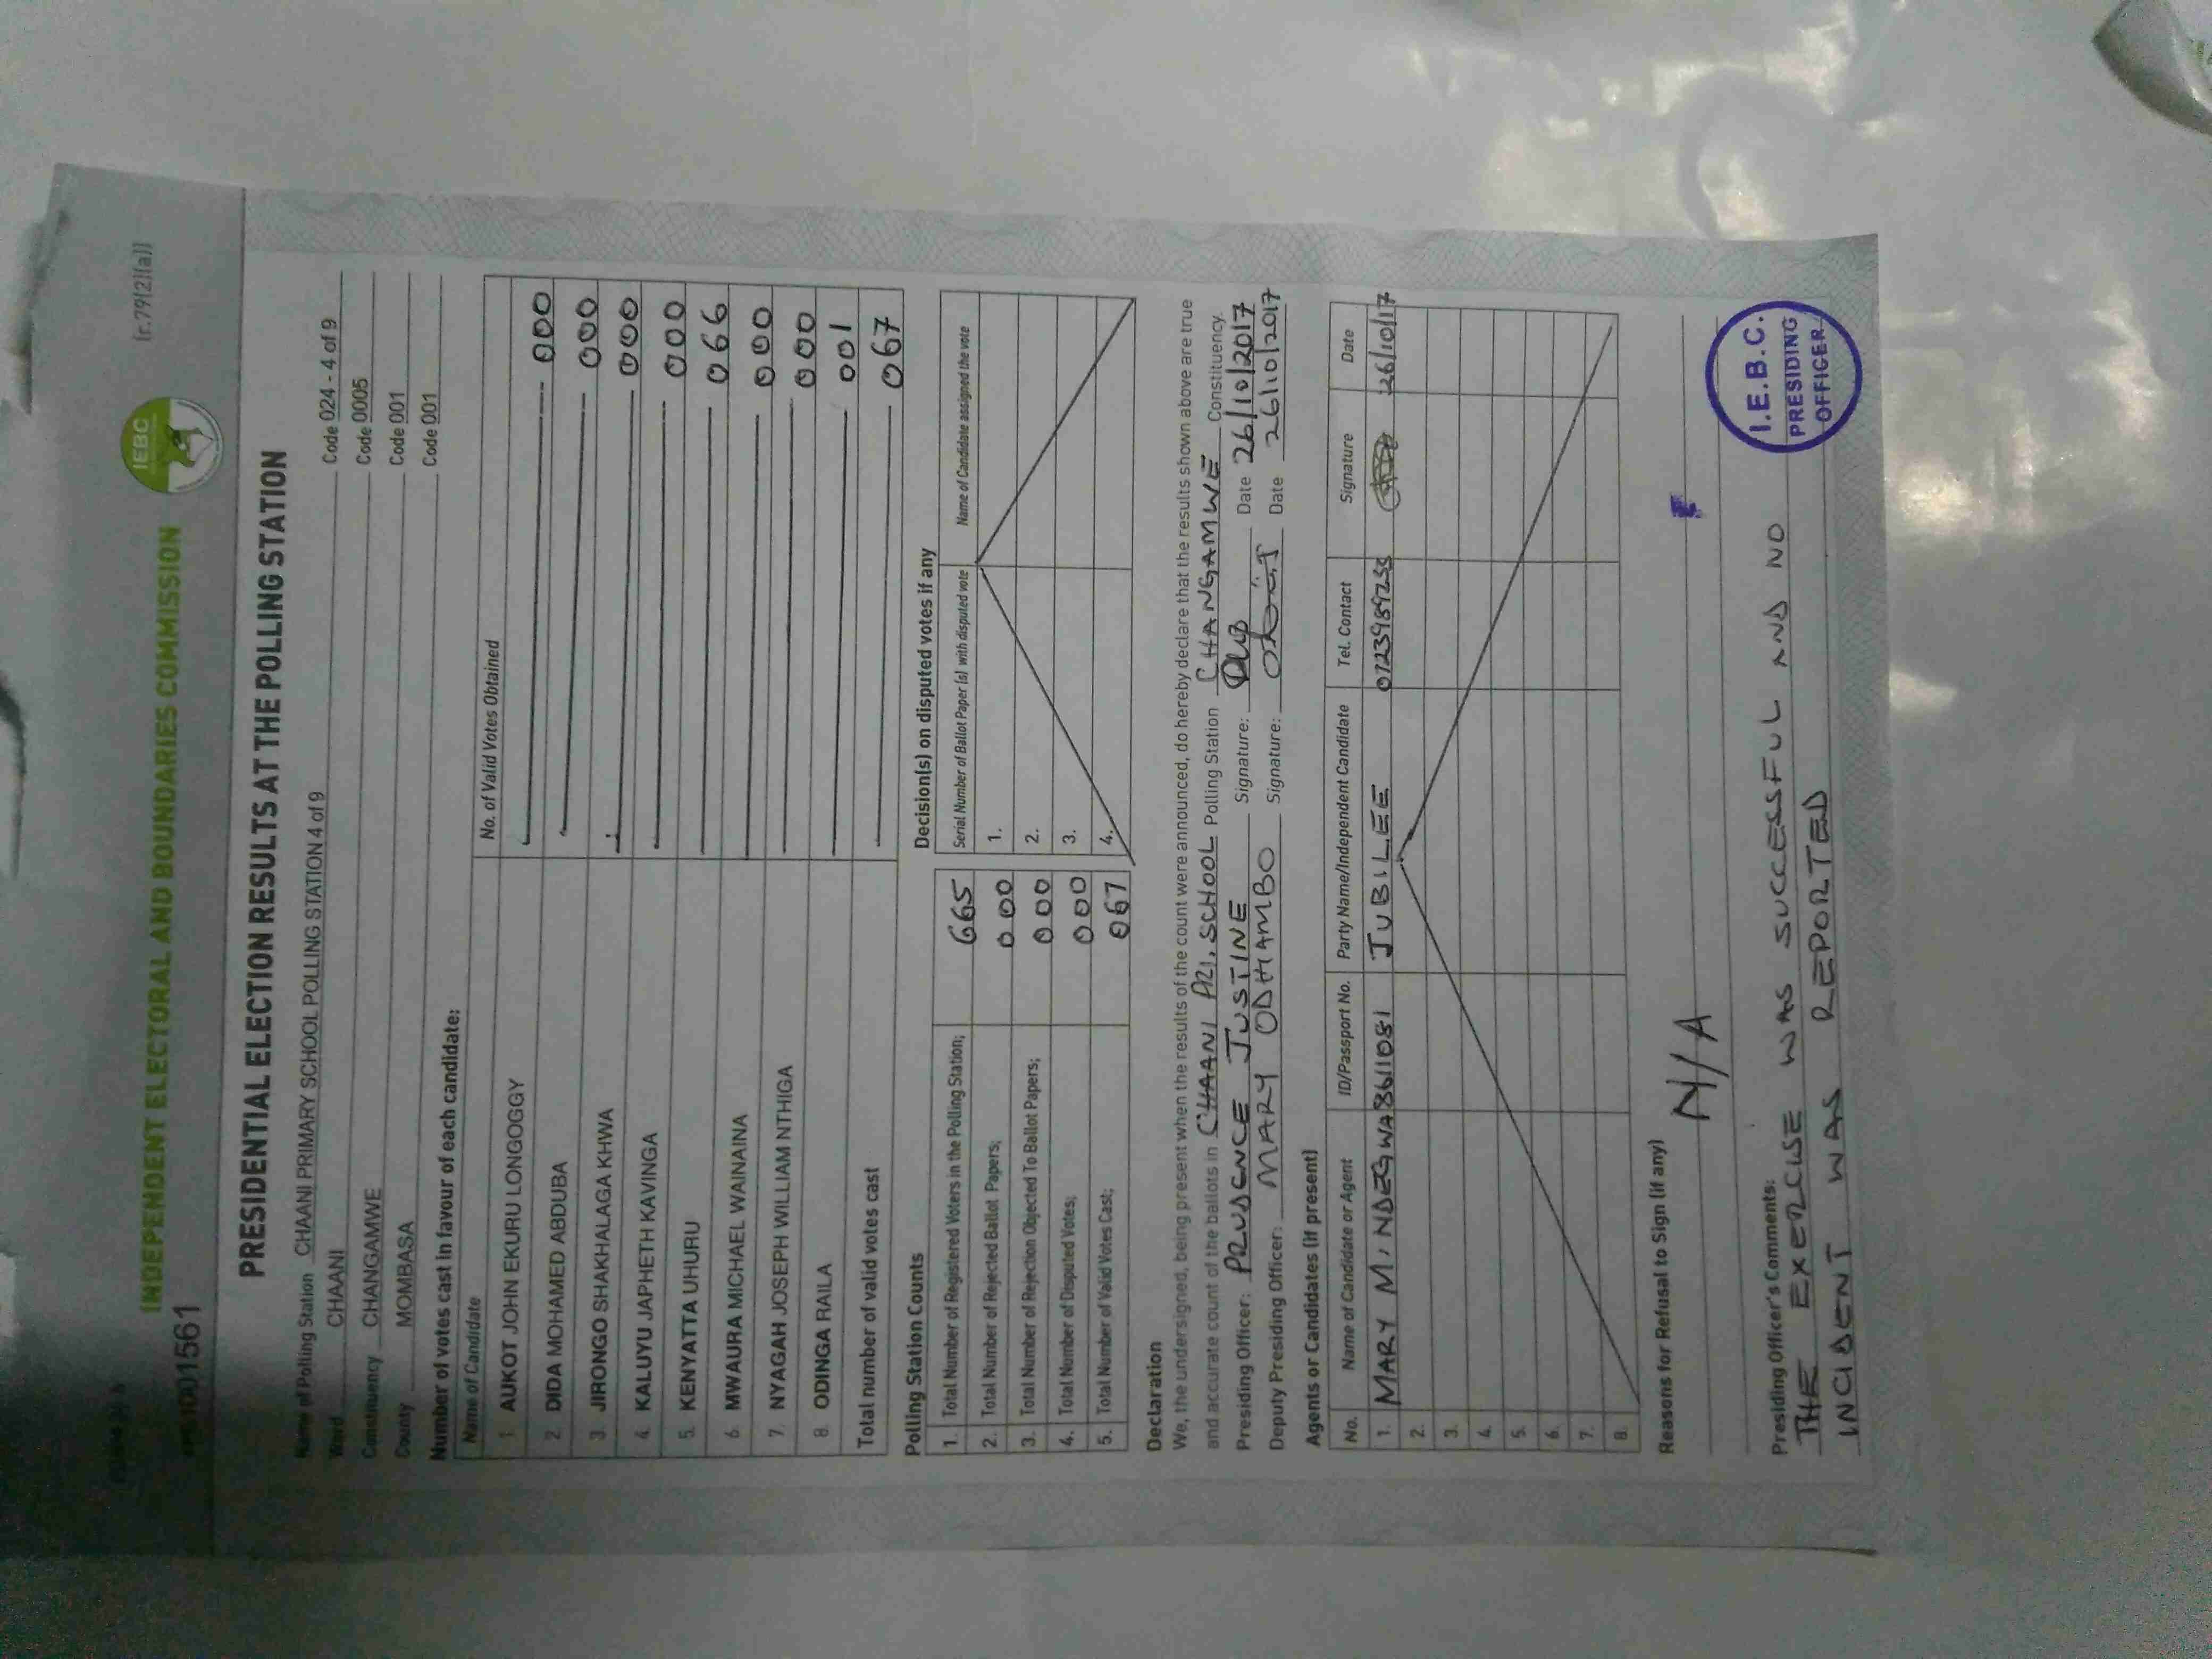 INDEPENDENT ELECTORAL AND BOUNDARIES COMMISSION
IEBC
(r.79(2)(a))
PRESIDENTIAL ELECTION RESULTS AT THE POLLING STATION
Name of Polling Station CHAANI PRIMARY SCHOOL POLLING STATION 4 of 9 Code 024 - 4 of 9
Ward CHAANI Code 0005
Constituency CHANGAMWE Code 001
County MOMBASA Code 001
Number of votes cast in favour of each candidate:
Name of Candidate No. of Valid Votes Obtained
1. AUKOT JOHN EKURU LONGOGGY 000
2. DIDA MOHAMED ABDUBA 000
3. JIRONGO SHAKHALAGA KHWA 000
4. KALUYU JAPHETH KAVINGA 000
5. KENYATTA UHURU 066
6. MWAURA MICHAEL WAINAINA 000
7. NYAGAH JOSEPH WILLIAM NTHIGA 000
8. ODINGA RAILA 001
Total number of valid votes cast 067
Polling Station Counts
1. Total Number of Registered Voters in the Polling Station; 665
2. Total Number of Rejected Ballot Papers; 000
3. Total Number of Rejection Objected To Ballot Papers; 000
4. Total Number of Disputed Votes; 000
5. Total Number of Valid Votes Cast; 067
Decision(s) on disputed votes if any
Serial Number of Ballot Paper (s) with disputed vote Name of Candidate assigned the vote
1.
2.
3.
4.
Declaration
We, the undersigned, being present when the results of the count were announced, do hereby declare that the results shown above are true
and accurate count of the ballots in CHAANI PRI. SCHOOL Polling Station CHANGAMWE Constituency.
Presiding Officer: PRUDENCE JUSTINE Signature: Date 26/10/2017
Deputy Presiding Officer: MARY ODHIAMBO Signature: Date 26/10/2017
Agents or Candidates (if present)
No. Name of Candidate or Agent ID/Passport No. Party Name/Independent Candidate Tel. Contact Signature Date
1. MARY M. NDEGWA 8611081 JUBILEE 26/10/17
2.
3.
4.
5.
6.
7.
8.
Reasons for Refusal to Sign (if any)
N/A
Presiding Officer's Comments:
THE EXERCISE WAS SUCCESSFUL AND NO
INCIDENT WAS REPORTED
I.E.B.C.
PRESIDING
OFFICER